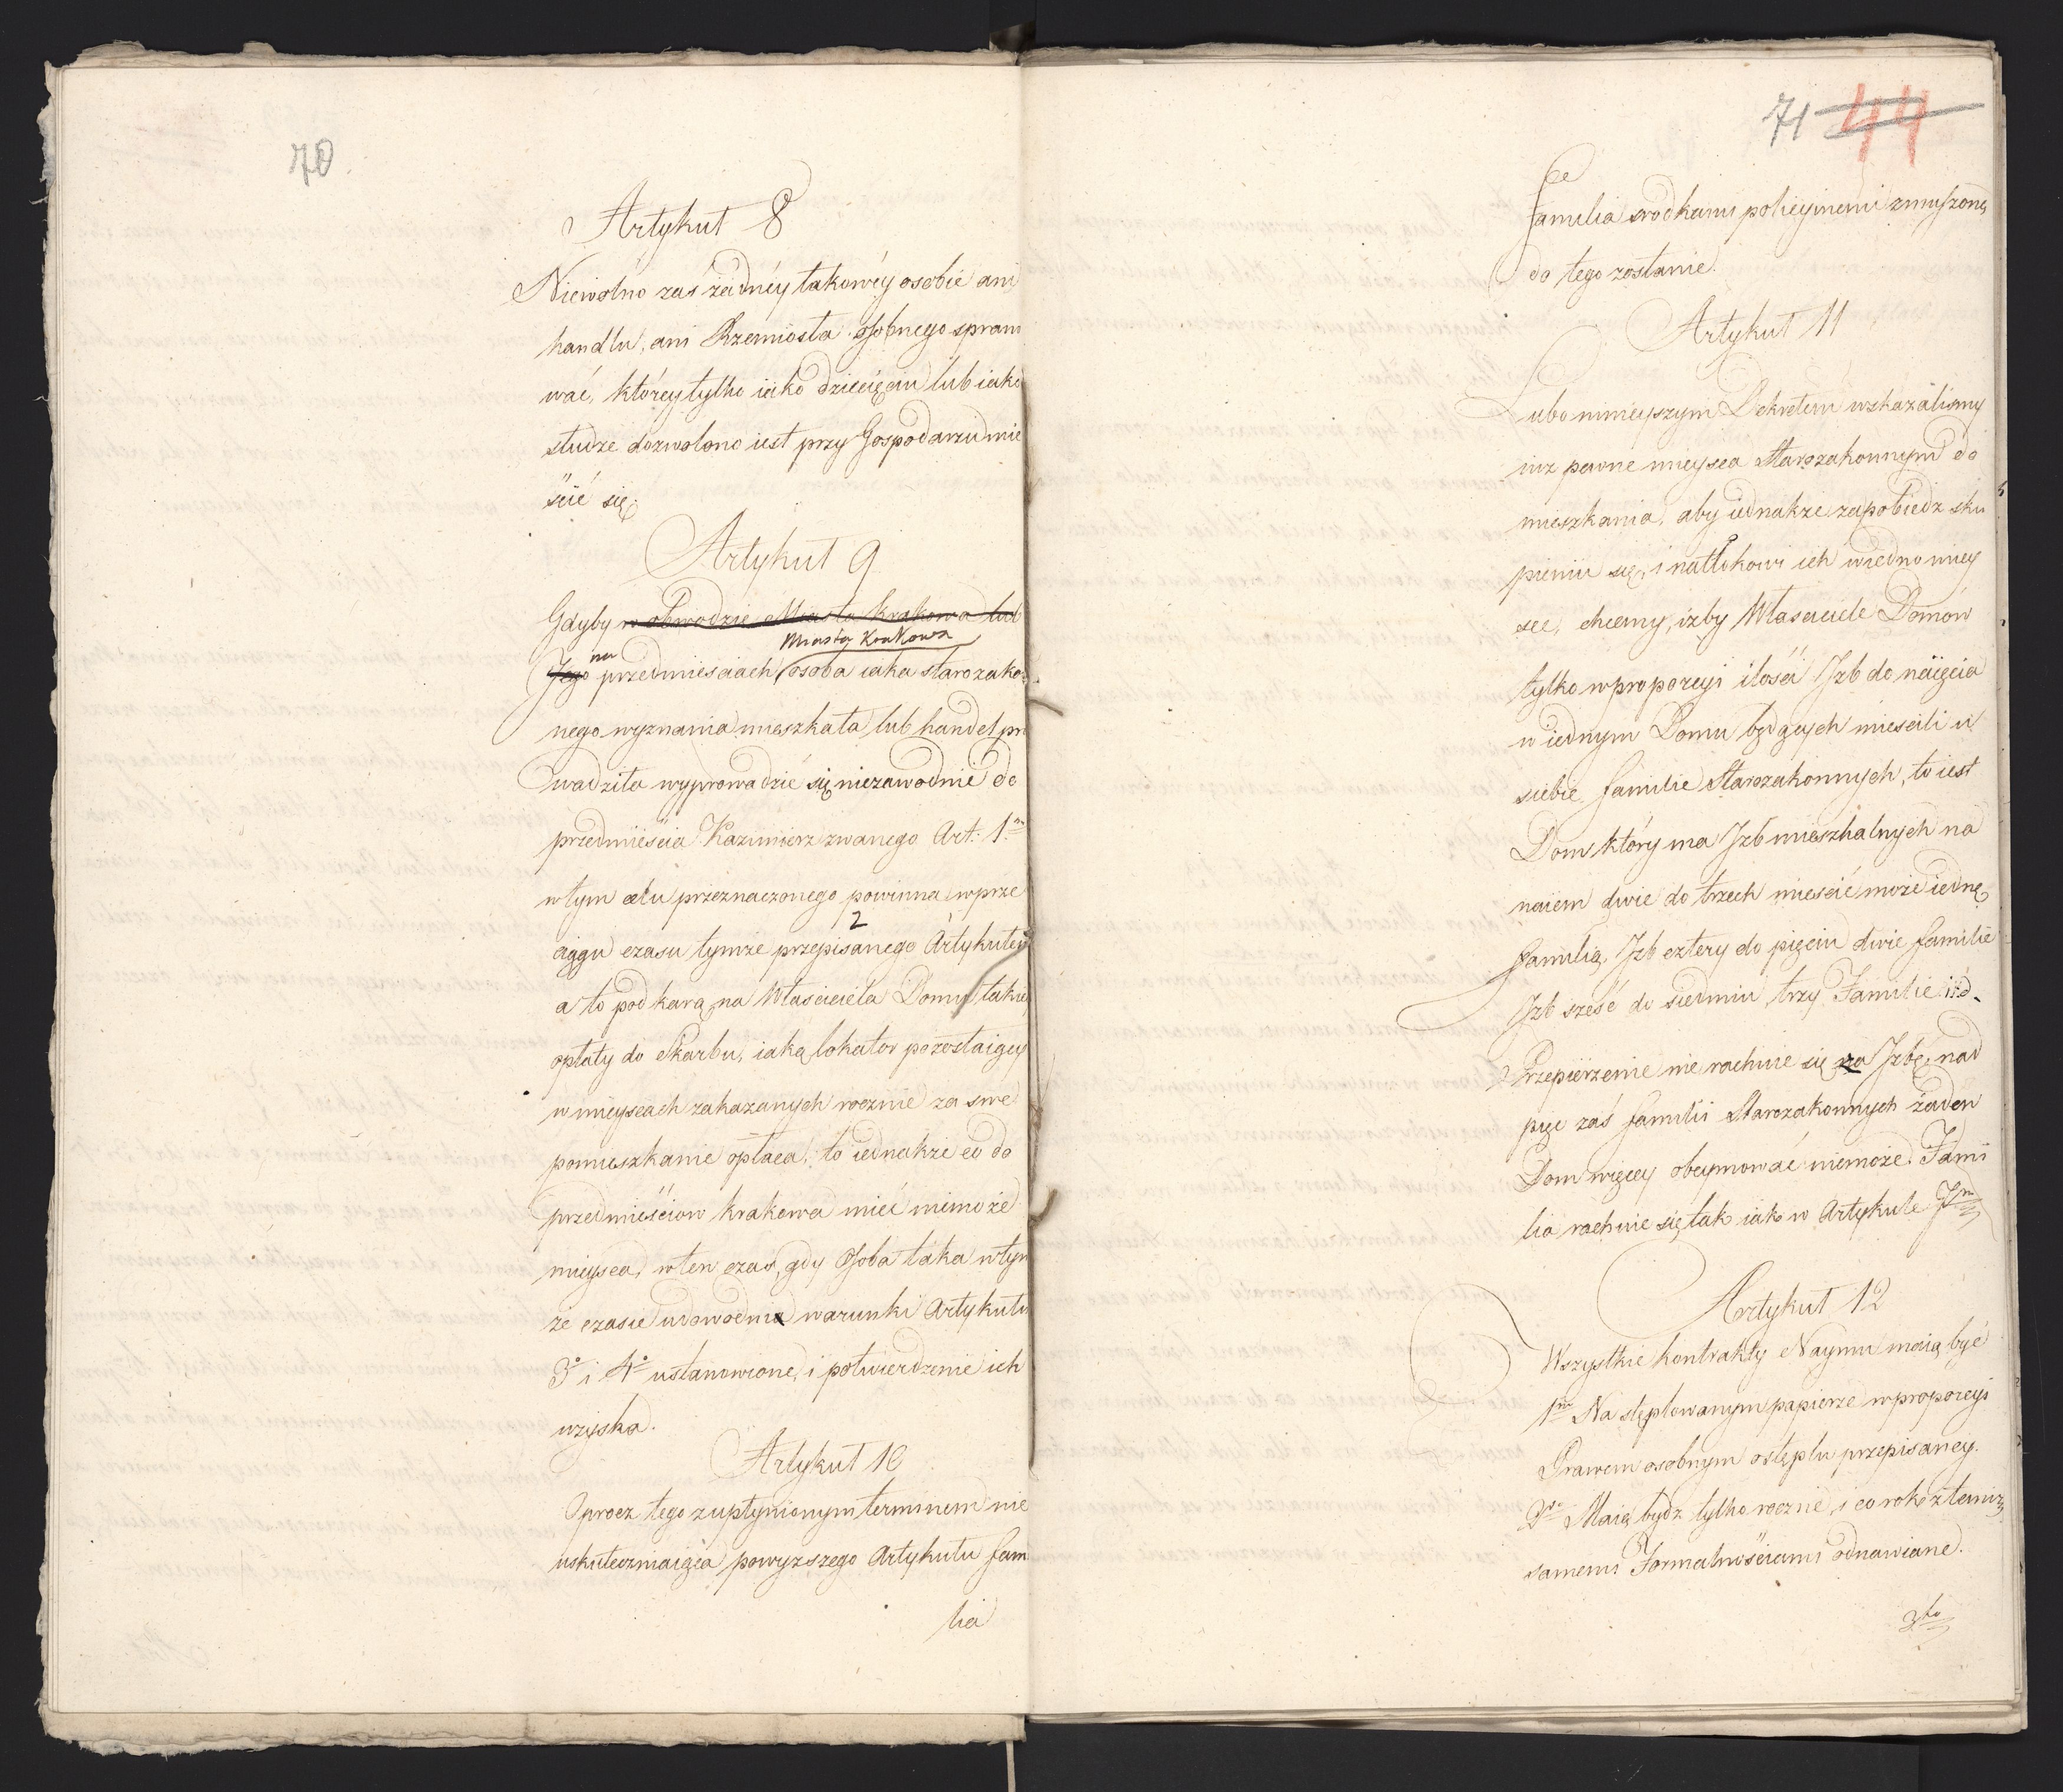 70.
Artykuł 8
Niewolno zaś żadnéy takowéy osobie ani
handlu, ani Rzemiosła osobnego spraw
wać, któréy tylko iako dziecięciu lub iako
słudze dozwolono iest przy Gospodarzu mie
ścić się.
Artykuł 9
Gdyby w obwodzie Miasta Krakowa lub
Miasta Krakowa
Jego na przedmiesciach osoba iaka starozako
nego wyznania mieszkała lub handel pro
wadziła wyprowadzić się niezawodnie do
przedmieścia Kazimierz zwanego Art: 1m
w tym celu przeznaczonego powinna w prze
2
ciągu czasu tymże przepisanego Artykułem
a to pod karą na Własciciela Domu takiéy
opłaty do Skarbu, iaką lokator pozostaiący
w mieyscach zakazanych rocznie za swe
pomieszkanie opłaca; to iednakże co do
przedmieściow Krakowa mieć niemoże
mieysca, w ten czas, gdy Osoba taka w tym
że czasie udowodni warunki Artykułu
3o i 4o ustanowione, i potwierdzenie ich
uzyska.
Artykuł 10
Oprocz tego z upłynionym terminem nie
uskuteczniaiąca powyższego Artykułu fam
lia
71 44
familia srodkami policyinemi zmuszoną
do tego zostanie.
Artykuł 11
Lubo ninieyszym Dekretem wskazalismy
iuz pewne mieysca Starozakonnym do
mieszkania, aby iednakże zapobiedz sku
pieniu się, i natłokowi ich w iedno miey
sce, chcemy, iżby Własciciele Domów
tylko w proporcyi ilości Izb do naięcia
w iednym Domu będących miescili u
siebie familie Starozakonnych, to iest
Dom który ma Izb mieszkalnych na
naiem dwie do trzech miescić może iedną
familią, Izb cztery do pięciu dwie familie
Izb sześć do siedmiu, trzy Familie itd.
Przepierzenie nie rachuie się za Izbę, nad
pięć zaś familii Starozakonnych żaden
Dom więcey obeymować niemoże. Fami
lia rachuie się tak iak w Artykule 7m
Artykuł 12
Wszystkie kontrakty Naymu maią być
1mo Na stęplowanym papierze w proporcyi
Prawem osobnym o stęplu przepisaney.
2do Maią bydz tylko rocznie, i co rok z temiż
samemi Formalnościami odnawiane.
3tio